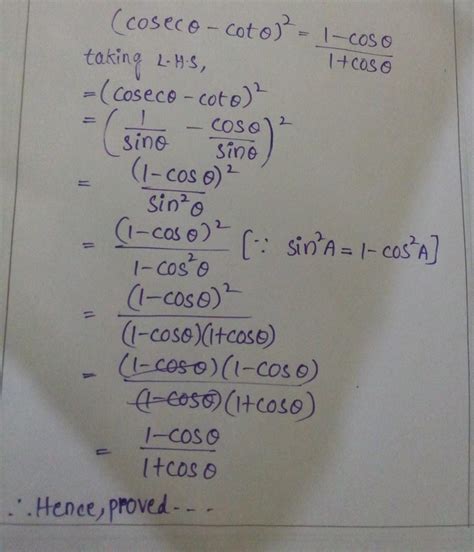 (cosecθ - cotθ)² = (1-cosθ)/(1+cosθ)
taking L.H.S,
= (cosecθ - cotθ)²
= (1/sinθ - cosθ/sinθ)²
= (1-cosθ)²/sin²θ
= (1-cosθ)²/(1-cos²θ) [∵ sin²A = 1-cos²A]
= (1-cosθ)²/((1-cosθ)(1+cosθ))
= (1-cosθ)(1-cosθ)/((1-cosθ)(1+cosθ))
= (1-cosθ)/(1+cosθ)
∴ Hence, proved ----